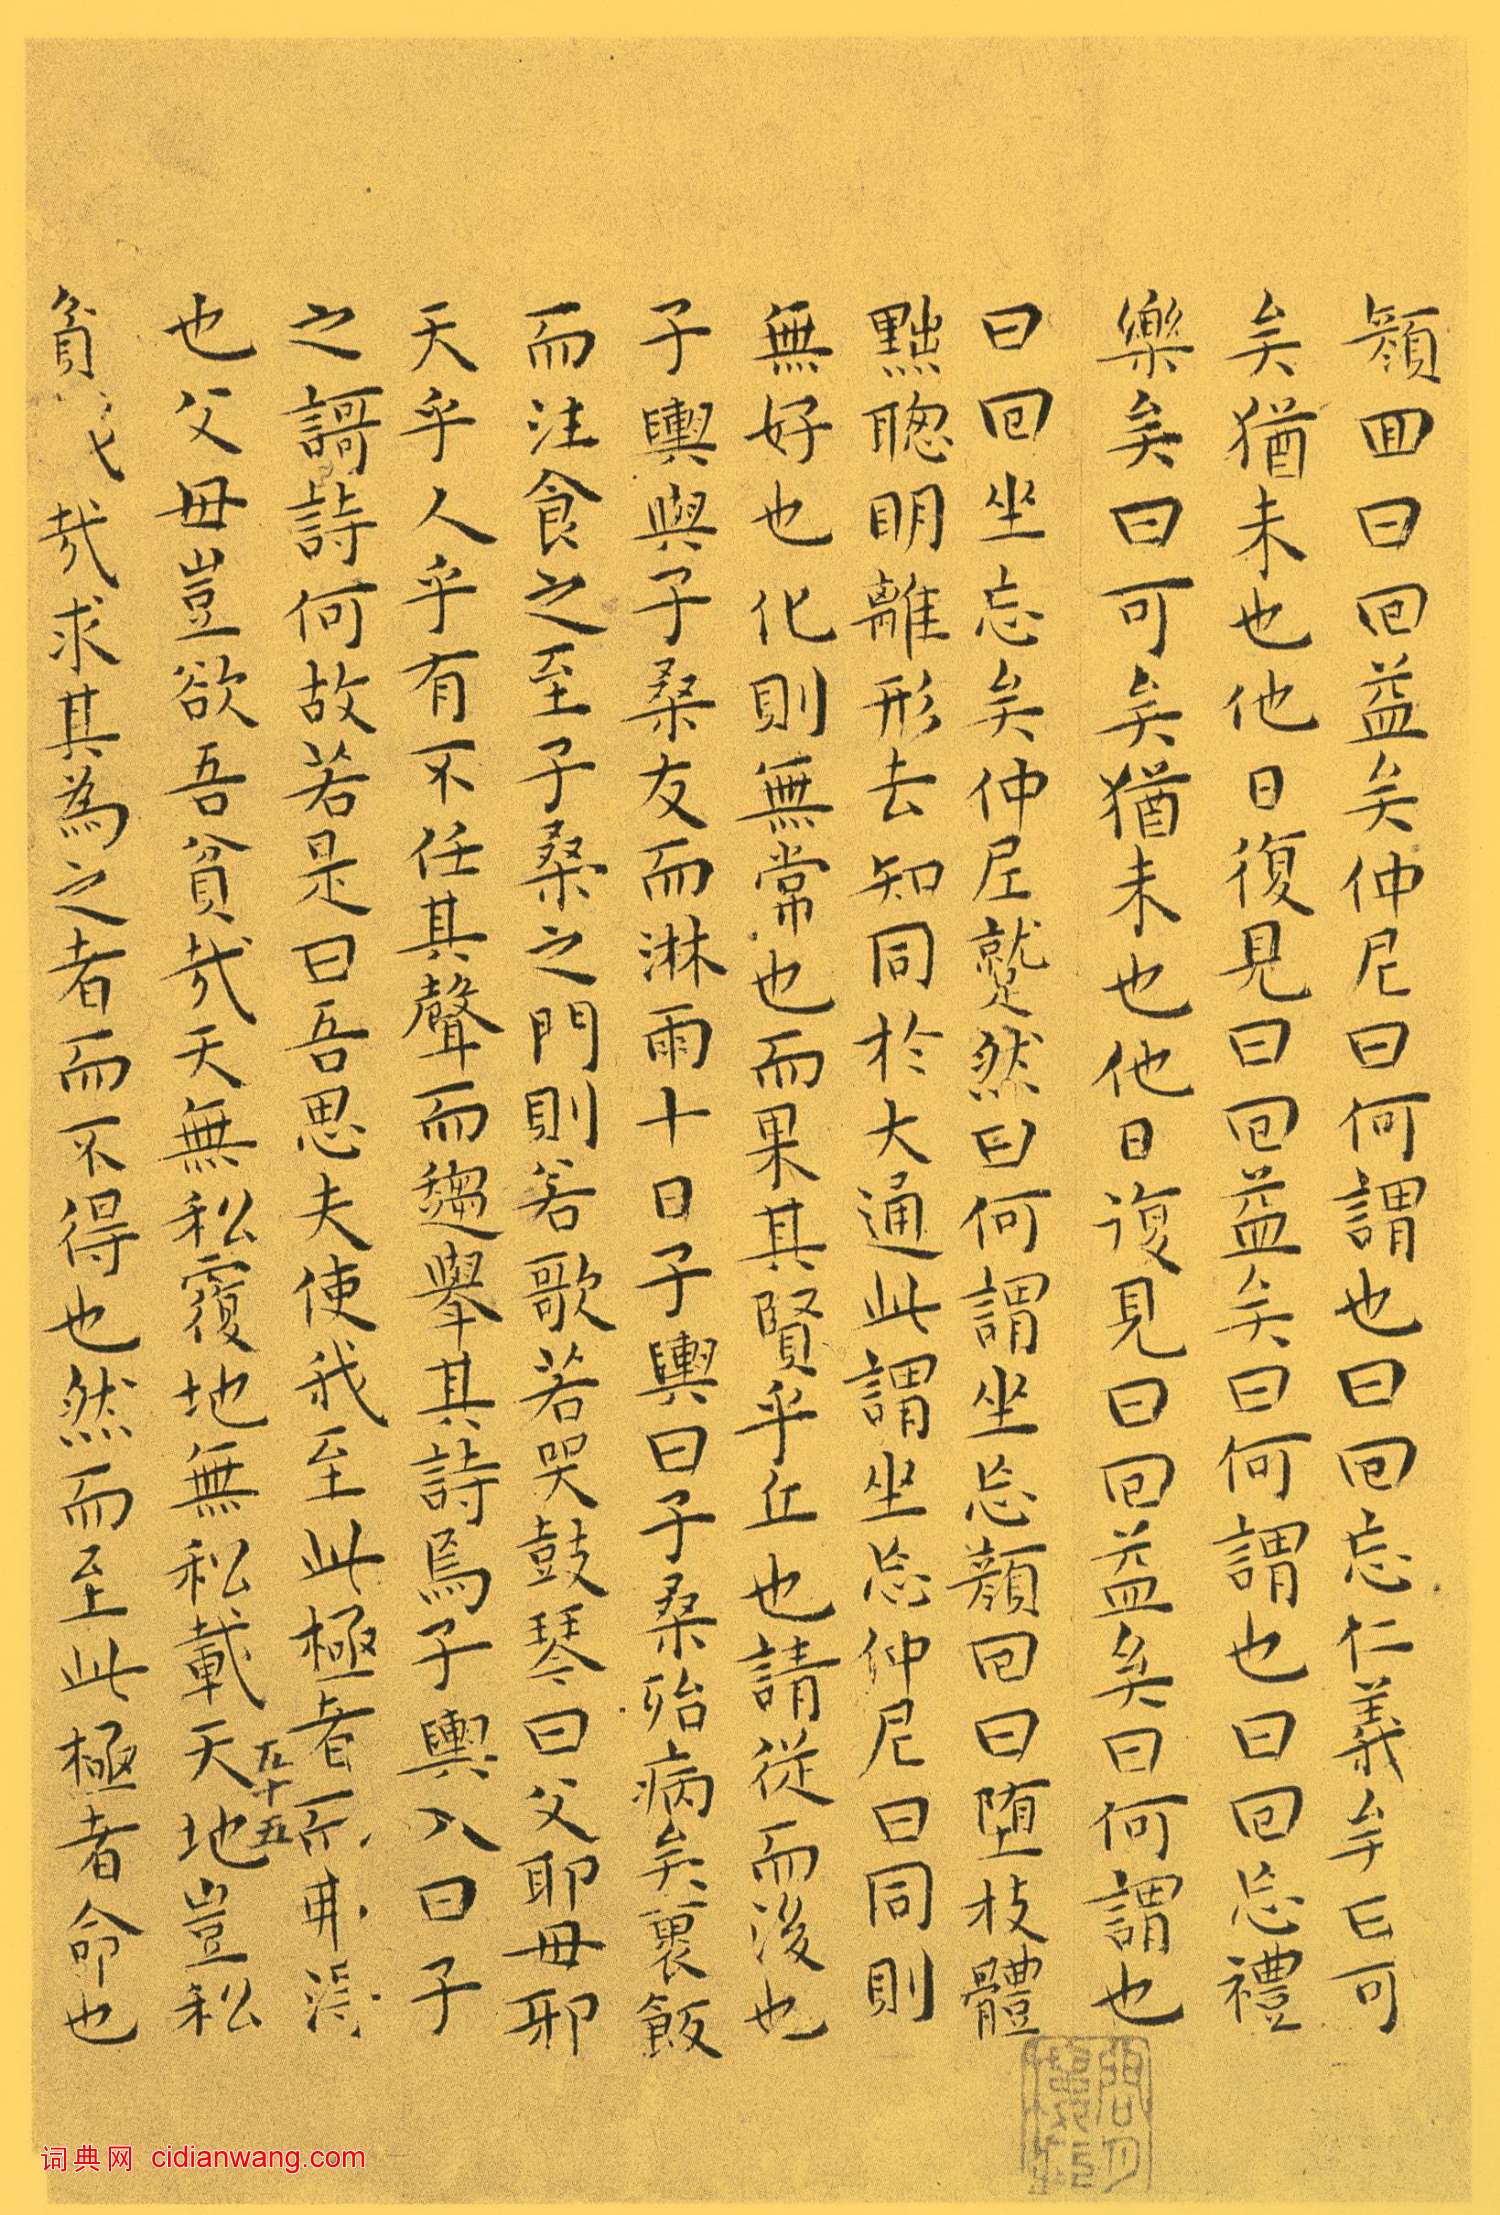 顏回曰回益矣仲尼曰何謂也曰回忘仁義矣曰可
矣猶未也他日復見曰回益矣曰何謂也曰回忘禮
樂矣曰可矣猶未也他日復見曰回益矣曰何謂也
曰回坐忘矣仲尼蹵然曰何謂坐忘顏回曰墮枝體
黜聰明離形去知同於大通此謂坐忘仲尼曰同則
無好也化則無常也而果其賢乎丘也請從而後也
子輿與子桑友而淋雨十日子輿曰子桑殆病矣裹飯
而注食之至子桑之門則若歌若哭鼓琴曰父耶母邪
天乎人乎有不任其聲而趨舉其詩焉子輿入曰子
之謌詩何故若是曰吾思夫使我至此極者而弗得
也父母豈欲吾貧哉天無私覆地無私載天地豈私
貧我哉求其為之者而不得也然而至此極者命也
五十五
词典网 cidianwang.com